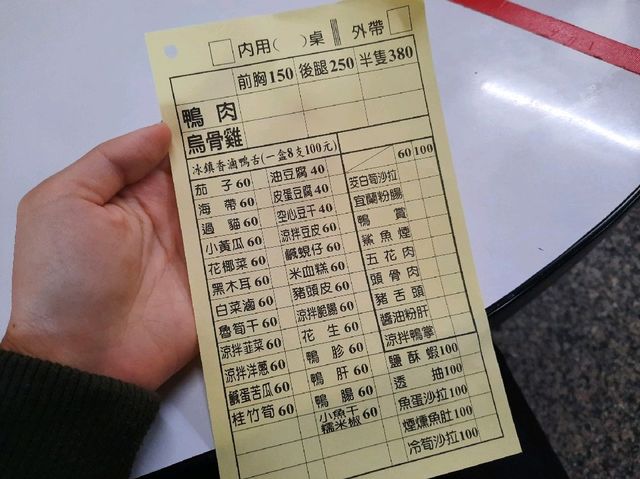 內用( )桌 外帶
前胸150 後腿250 半隻380
鴨肉
烏骨雞
冰鎮香滷鴨舌(一盒8支100元)
茄子60
海帶60
過貓60
小黃瓜60
花椰菜60
黑木耳60
白菜滷60
魯筍干60
涼拌韮菜60
涼拌洋蔥60
鹹蛋苦瓜60
桂竹筍60
油豆腐40
皮蛋豆腐40
空心豆干40
涼拌豆皮60
鹹蜆仔60
米血糕60
豬頭皮60
涼拌脆腸60
花生60
鴨胗60
鴨肝60
鴨腸60
小魚干
糯米椒60
60 100
茭白筍沙拉
宜蘭粉腸
鴨賞
鯊魚煙
五花肉
頭骨肉
豬舌頭
醬油粉肝
涼拌鴨掌
鹽酥蝦100
透抽100
魚蛋沙拉100
煙燻魚肚100
冷筍沙拉100